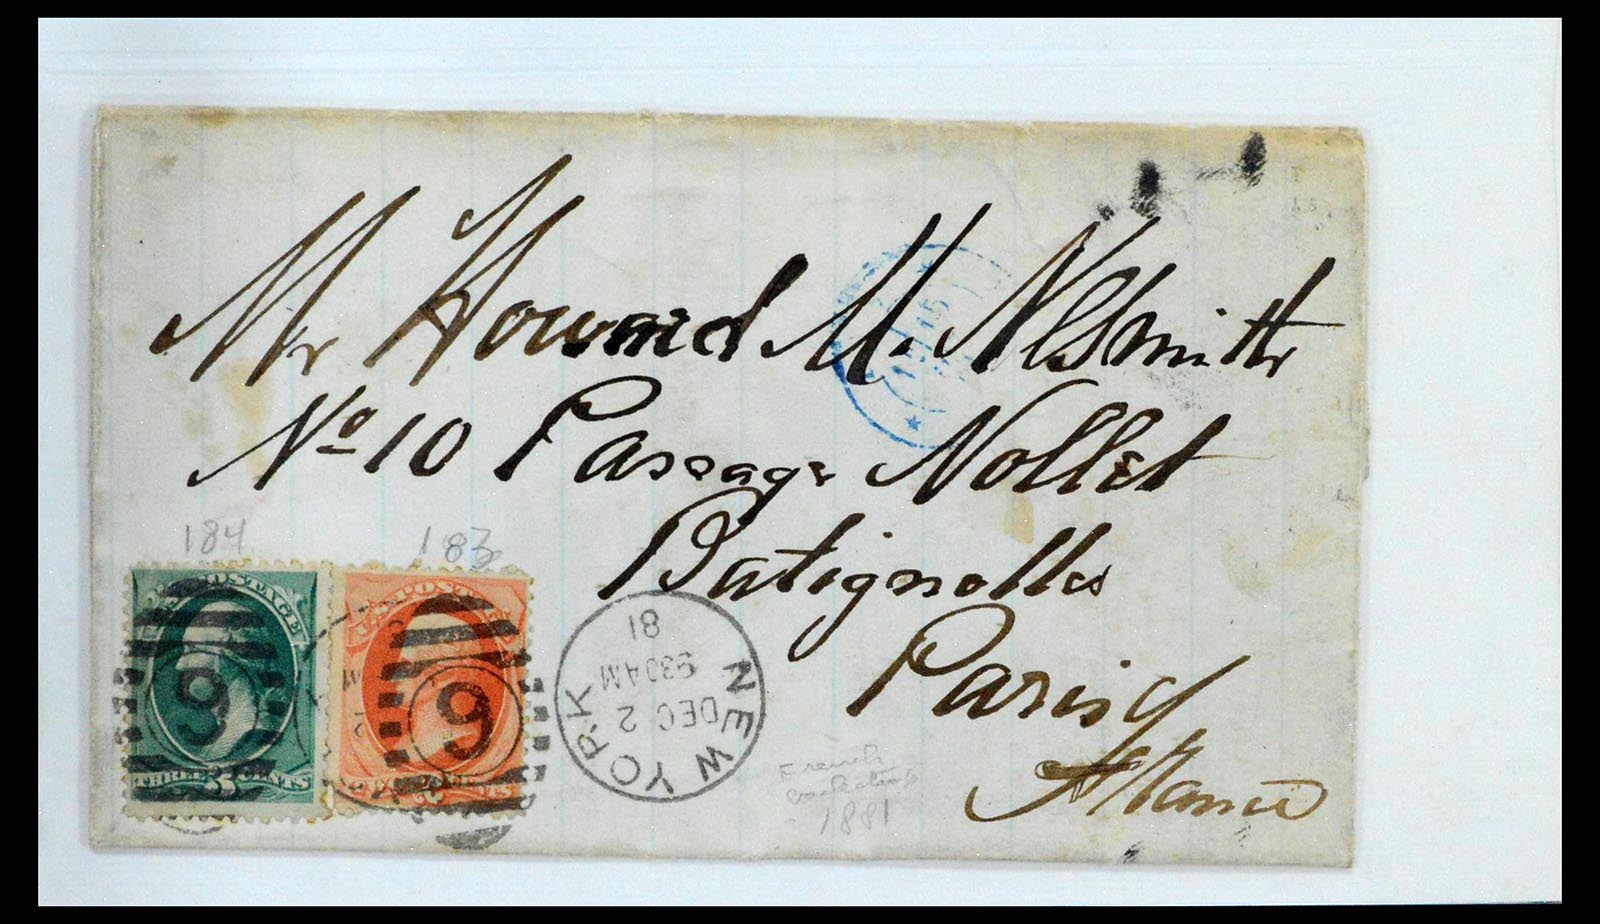 Mr Howard M. NeSmith
No 10 Passage Nollet
Batignolles
Paris
France
184
183
POSTAGE
THREE 3 CENTS
POSTAGE
2
6
6
NEW YORK
DEC 2
930AM
81
15
French
1881